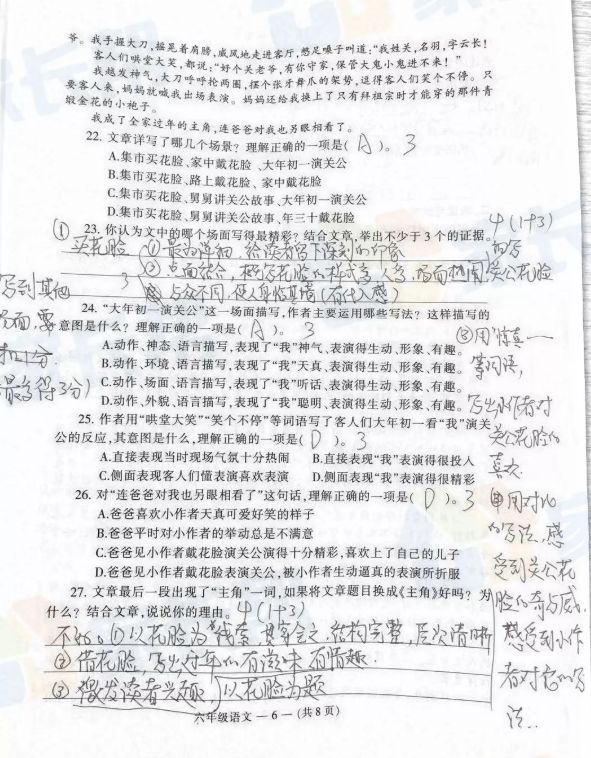 爷。我手握大刀,摇晃着肩膀,威风地走进客厅,憋足嗓子叫道:“我姓关,名羽,字云长!
客人们哄堂大笑,都说:“好个关老爷,有你守家,保管大鬼小鬼进不来!”
我越发神气,大刀呼呼抡两圈,摆个张牙舞爪的架势,逗得客人们笑个不停。只
要客人来,妈妈就喊我出场表演。妈妈还给我换上了只有拜祖宗时才能穿的那件青
缎金花的小袍子。
我成了全家过年的主角,连爸爸对我也另眼相看了。
22. 文章详写了哪几个场景? 理解正确的一项是( A )。 3
A.集市买花脸、家中戴花脸、大年初一演关公
B.集市买花脸、路上戴花脸、家中戴花脸
C.集市买花脸、舅舅讲关公故事、大年初一演关公
D.集市买花脸、舅舅讲关公故事、年三十戴花脸
① 23. 你认为文中的哪个场面写得最精彩? 结合文章,举出不少于3个的证据。 4(1+3)
买花脸 ①最为详细,给读者留下深刻的印象
3 ②点面结合,概写花脸的样式多、人多,场面热闹
③与众不同,使人身临其境(有代入感)
写到其他
场面,要
扣1分
最多得3分)
24. “大年初一演关公”这一场面描写,作者主要运用哪些写法? 这样描写的
意图是什么? 理解正确的一项是( A )。 3
A.动作、神态、语言描写,表现了“我”神气、表演得生动、形象、有趣。
B.动作、环境、语言描写,表现了“我”天真、表演得生动、形象、有趣。
C.动作、场面、语言描写,表现了“我”听话、表演得生动、形象、有趣。
D.动作、外貌、语言描写,表现了“我”聪明、表演得生动、形象、有趣。
25. 作者用“哄堂大笑”“笑个不停”等词语写了客人们大年初一看“我”演关
公的反应,其意图是什么,理解正确的一项是( D )。 3
A.直接表现当时现场气氛十分热闹 B.直接表现“我”表演得很投入
C.侧面表现客人们懂表演喜欢表演 D.侧面表现“我”表演得很精彩
26. 对“连爸爸对我也另眼相看了”这句话,理解正确的一项是( D )。 3
A.爸爸喜欢小作者天真可爱好笑的样子
B.爸爸平时对小作者的举动总是不满意
C.爸爸见小作者戴花脸演关公演得十分精彩,喜欢上了自己的儿子
D.爸爸见小作者戴花脸表演关公,被小作者生动逼真的表演所折服
关公花脸
等词语,
写出小作者对
关公花脸的
喜欢
④用对比
的写法,感
受到关公花
脸的奇与威,
感受到小作
者对它的写
法..
27. 文章最后一段出现了“主角”一词,如果将文章题目换成《主角》好吗? 为
什么? 结合文章,说说你的理由。 4(1+3)
不好。①以花脸为线索,贯穿全文,结构完整,层次清晰
②借花脸,写出过年的有滋味有情趣.
③激发读者兴趣,以花脸为题
六年级语文—6—(共8页)